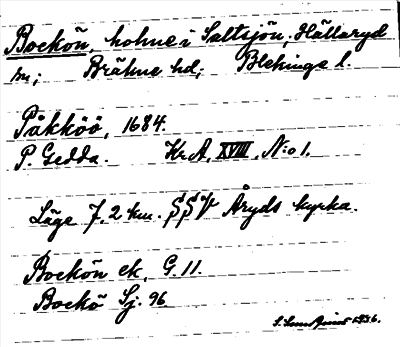 Bockön, holme i Saltsjön; Hällaryd
sn; Bräkne hd; Blekinge l.
Påkköö, 1684.
P. Gedda. Kr.A, XVIII, N:o 1.
Läge 7,2 km. SSV Åryds kyrka.
Bockön ek. G. 11.
Bockö Sj. 96
1936.